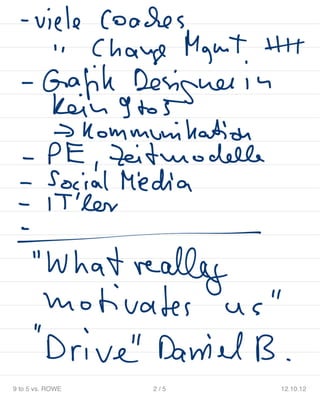 - viele Coaches
" Change Mgmt. ||||
- Grafik Designerin
kein 9 to 5
⇒ Kommunikation
- PE, Zeitmodelle
- Social Media
- IT'ler
-
"What really
motivates us"
"Drive" Daniel B.
9 to 5 vs. ROWE 2 / 5 12.10.12